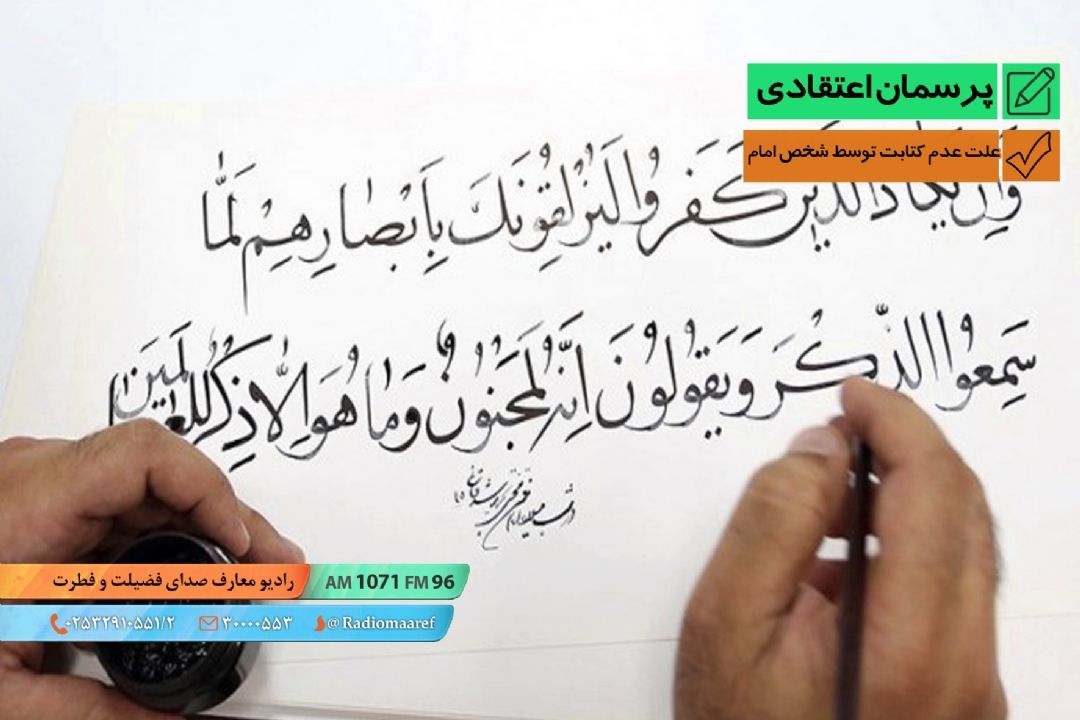 پرسمان اعتقادی
علت عدم کتابت توسط شخص امام
وَاِن یَکادُ الَّذینَ کَفَرُوا لَیُزْلِقُونَکَ بِاَبْصارِهِمْ لَمَّا
سَمِعُوا الذِّکْرَ وَیَقُولُونَ اِنَّهُ لَمَجْنُونٌ وَما هُوَ اِلّا ذِکْرٌ لِلْعالَمینَ
رادیو معارف صدای فضیلت و فطرت
AM 1071 FM 96
۰۲۵۳۲۹۱۰۵۵۱/۲
۳۰۰۰۰۵۵۳
@Radiomaaref